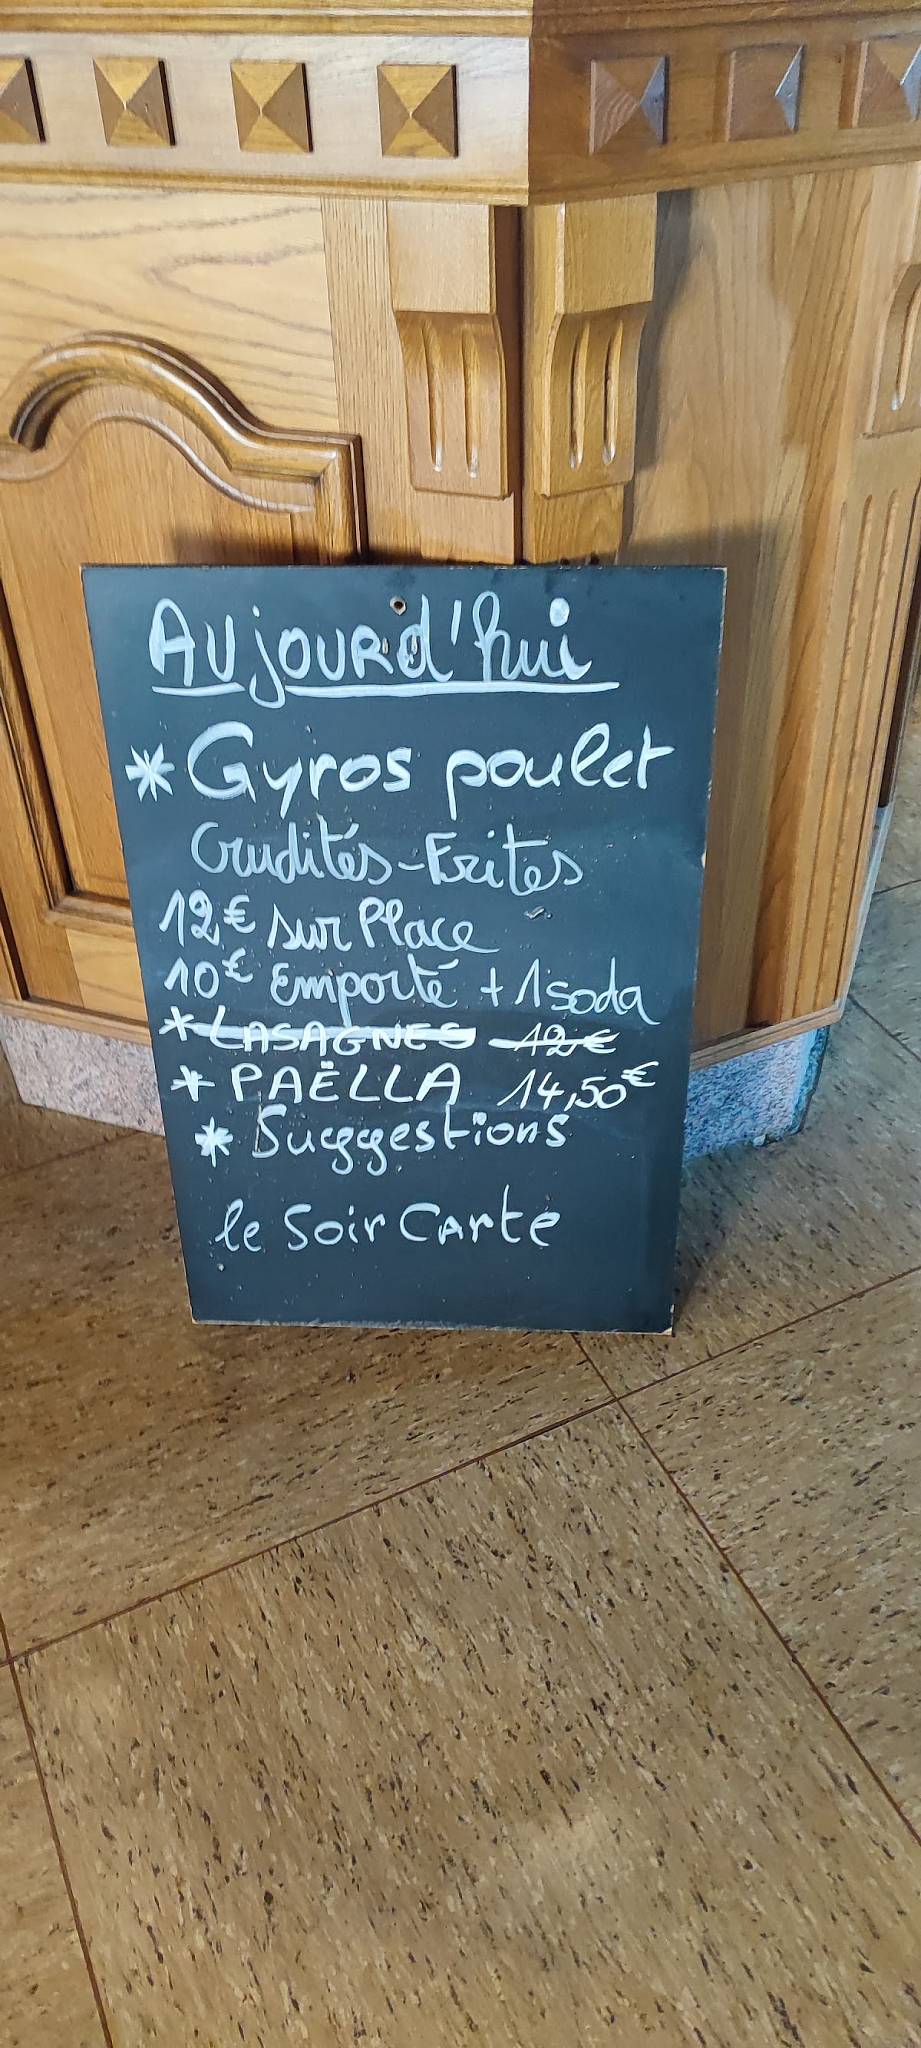 Aujourd'hui
* Gyros poulet
Crudités-Frites
12€ sur Place
10€ emporté + 1 soda
* LASAGNES 12€
* PAËLLA 14,50€
* Suggestions
le Soir Carte